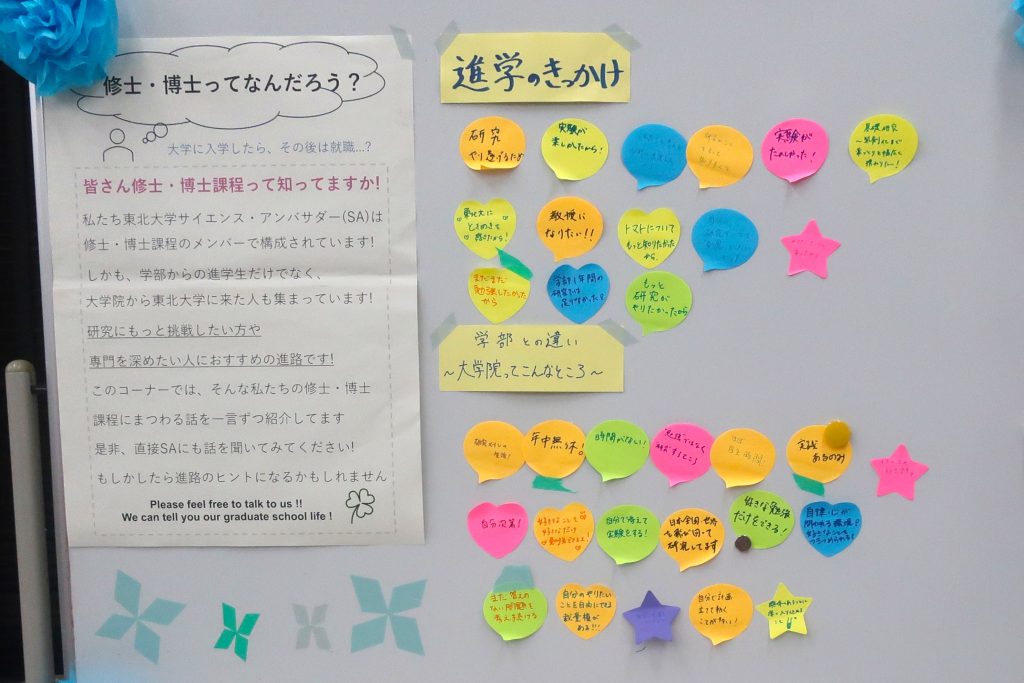 修士・博士ってなんだろう？
大学に入学したら、その後は就職...?
皆さん修士・博士課程って知ってますか!
私たち東北大学サイエンス・アンバサダー(SA)は
修士・博士課程のメンバーで構成されています!
しかも、学部からの進学生だけでなく、
大学院から東北大学に来た人も集まっています!
研究にもっと挑戦したい方や
専門を深めたい人におすすめの進路です!
このコーナーでは、そんな私たちの修士・博士
課程にまつわる話を一言ずつ紹介してます
是非、直接SAにも話を聞いてみてください!
もしかしたら進路のヒントになるかもしれません
Please feel free to talk to us !!
We can tell you our graduate school life !
進学のきっかけ
研究
やり遂げるため
実験が
楽しかたから!
実験が
たのしかった!
基礎研究
東北大に
ときめきを
感じたから!
教授に
なりたい!!
トマトについて
もっと知りたかった
から。
まだまだ
勉強したかた
から
学部1年間の
研究では
足りなかった
もっと
研究が
やりたかったから
学部との違い
～大学院ってこんなところ～
研究メインの
生活!
年中無休!
時間がない!
勉強ではなく
実践
あるのみ
自分次第!
好きなことを
好きなだけ
自分で考えて
実験をする!
日本全国・世界
を飛び回って
研究してます
好きな勉強
だけをできる!
自律心が
問われる環境
好きなことを
つきつめられる!
まだ答えの
ない問題を
考え続ける
自分のやりたい
ことを自由にできる
裁量権が
ある!!!
自分で計画
立てて動く
ことが多い!